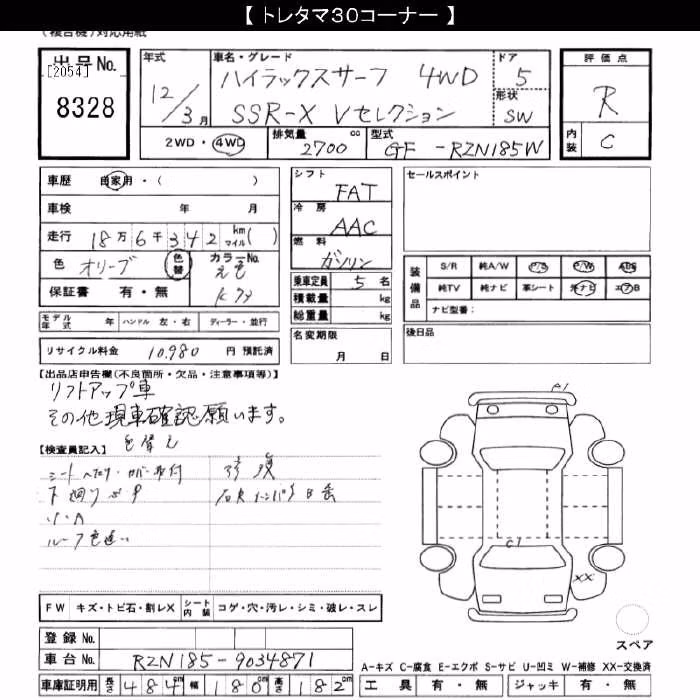 【 トレタマ３０コーナー 】
(複合機)対応用紙
出品No.
[2054]
8328
年式
12/3月
車名・グレード
ハイラックスサーフ 4WD
SSR-X Vセレクション
ドア
5
形状
SW
評価点
R
内装
C
2WD・4WD
排気量 2700 cc
型式 GF-RZN185W
車歴 自家用・( )
車検 年 月
走行 18万6千342 km マイル( )
色 オリーブ 色替 カラーNo. 元色
保証書 有・無
シフト
FAT
冷房
AAC
燃料
ガソリン
乗車定員 5 名
積載量 kg
総重量 kg
セールスポイント
装備品
S/R 純A/W P/S P/W ABS
純TV 純ナビ 革シート 社ナビ エアB
ナビ型番:
モデル年式 年 ハンドル 左・右 ディーラー・並行
リサイクル料金 10,980 円 預託済
名変期限
月 日
後日品
【出品店申告欄(不良箇所・欠品・注意事項等)】
リフトアップ車
その他現車確認願います。
【検査員記入】
色替え
シート ヘタリ・カバー取付
下廻りサビ
小A
ルーフ色違い
修復
A1
C1
XX
FW キズ・トビ石・割レX シート内装 コゲ・穴・汚レ・シミ・破レ・スレ
スペア
登録No.
車台No. RZN185-9034871
A-キズ C-腐食 E-エクボ S-サビ U-凹ミ W-補修 XX-交換済
車庫証明用 長さ 484cm 幅 180cm 高さ 182cm
工具 有・無 ジャッキ 有・無